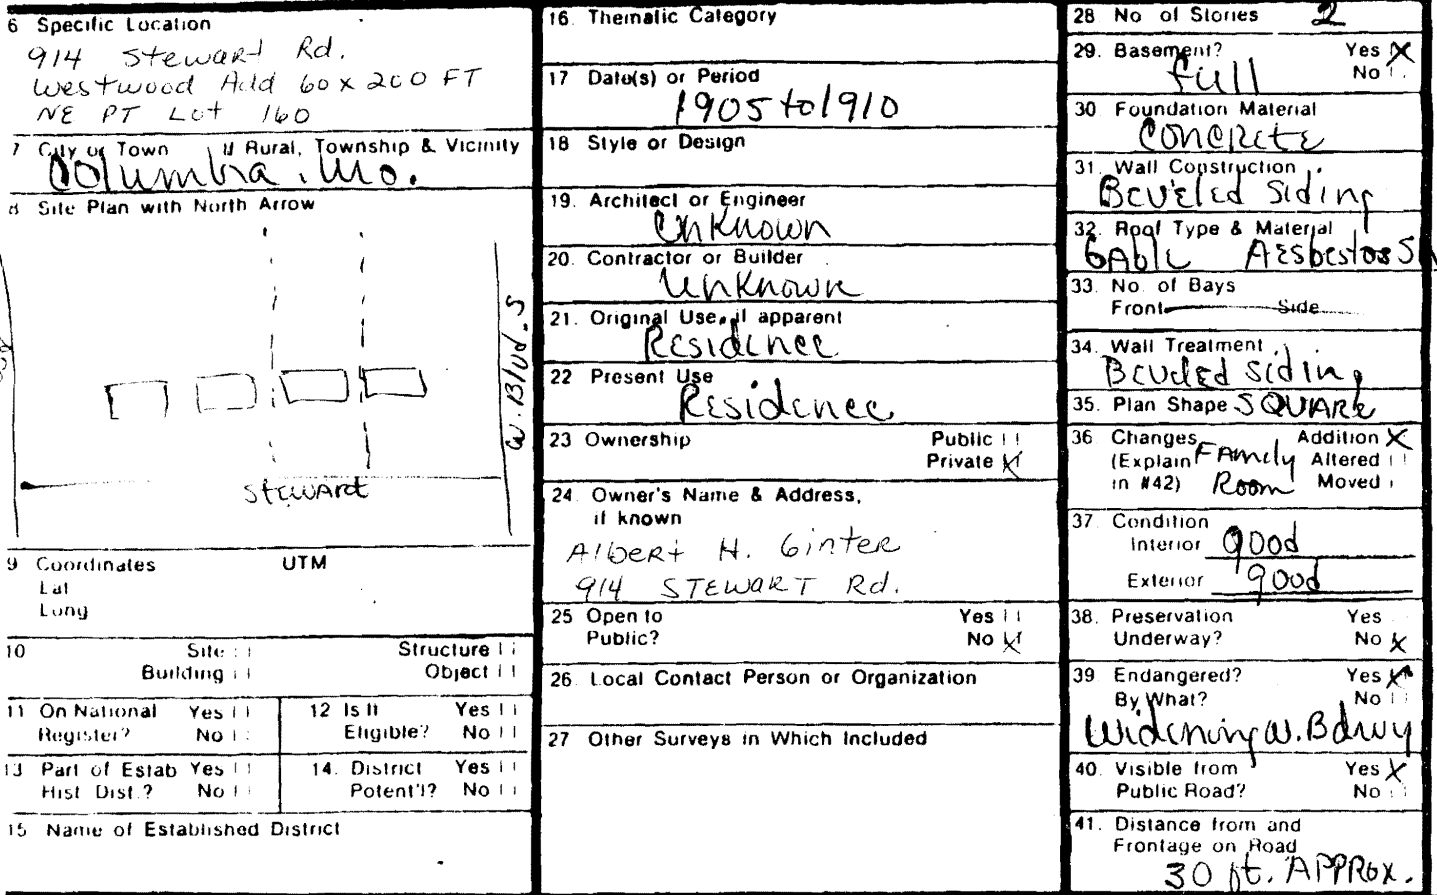 6 Specific Location
914 Stewart Rd.
Westwood Add 60 x 200 FT
NE PT Lot 160
7 City or Town If Rural, Township & Vicinity
Columbia, Mo.
8 Site Plan with North Arrow
W. Blvd. S
Stewart
9 Coordinates UTM
Lat
Long
10 Site Structure
Building Object
11 On National Register? Yes No
12 Is It Eligible? Yes No
13 Part of Estab Hist Dist.? Yes No
14. District Potent'l? Yes No
15 Name of Established District
16. Thematic Category
17 Date(s) or Period
1905 to 1910
18 Style or Design
19. Architect or Engineer
Unknown
20. Contractor or Builder
Unknown
21. Original Use, if apparent
Residence
22 Present Use
Residence
23 Ownership Public
Private X
24. Owner's Name & Address,
if known
Albert H. Ginter
914 STEWART Rd.
25 Open to Yes
Public? No X
26. Local Contact Person or Organization
27 Other Surveys in Which Included
28 No of Stories 2
29. Basement? Yes X
full No
30 Foundation Material
Concrete
31. Wall Construction
Beveled Siding
32. Roof Type & Material
GAble AEsbestos Sh
33. No. of Bays
Front Side
34. Wall Treatment
Beveled Siding
35. Plan Shape SQUARE
36. Changes Addition X
(Explain FAmily Altered
in #42) Room Moved
37. Condition
Interior good
Exterior good
38. Preservation Yes
Underway? No X
39 Endangered? Yes X
By What? No
Widening W. Bdwy
40. Visible from Yes X
Public Road? No
41. Distance from and
Frontage on Road
30 ft. APPROX.